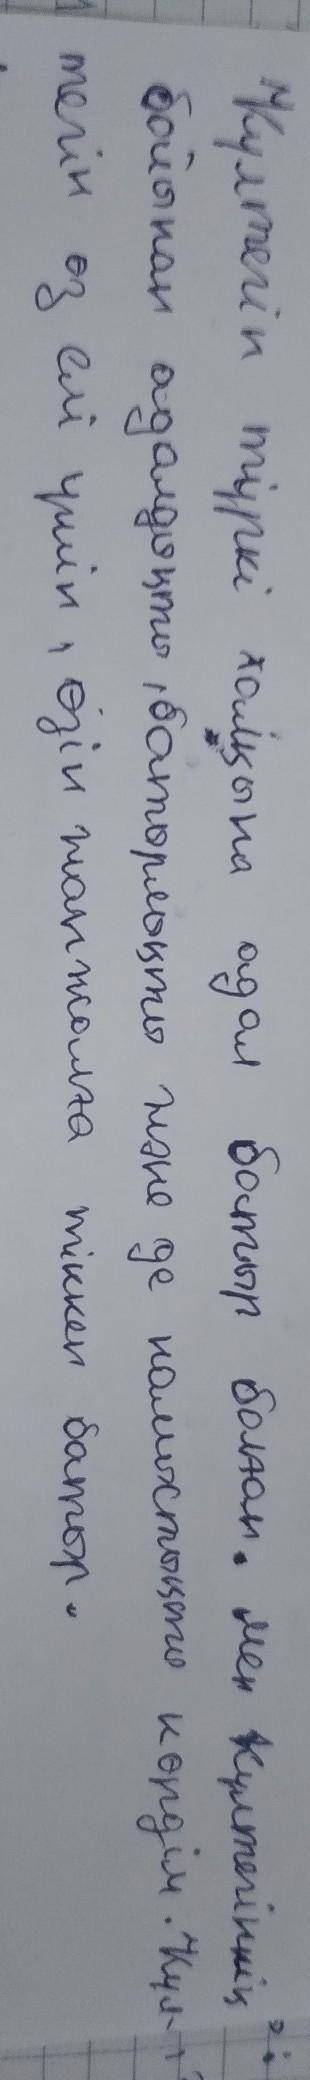 Күлтегін түркі халқына адал батыр болған. Мен Күлтегіннің
бойынан адалдықты, батырлықты және де намыстықты көрдім. Күл-
тегін өз елі үшін, өзін жан жалға тіккен батыр.